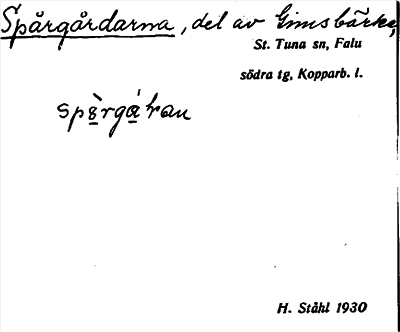 Spårgårdarna, del av Gimsbärke,
St. Tuna sn, Falu
södra tg, Kopparb. l.
H. Ståhl 1930